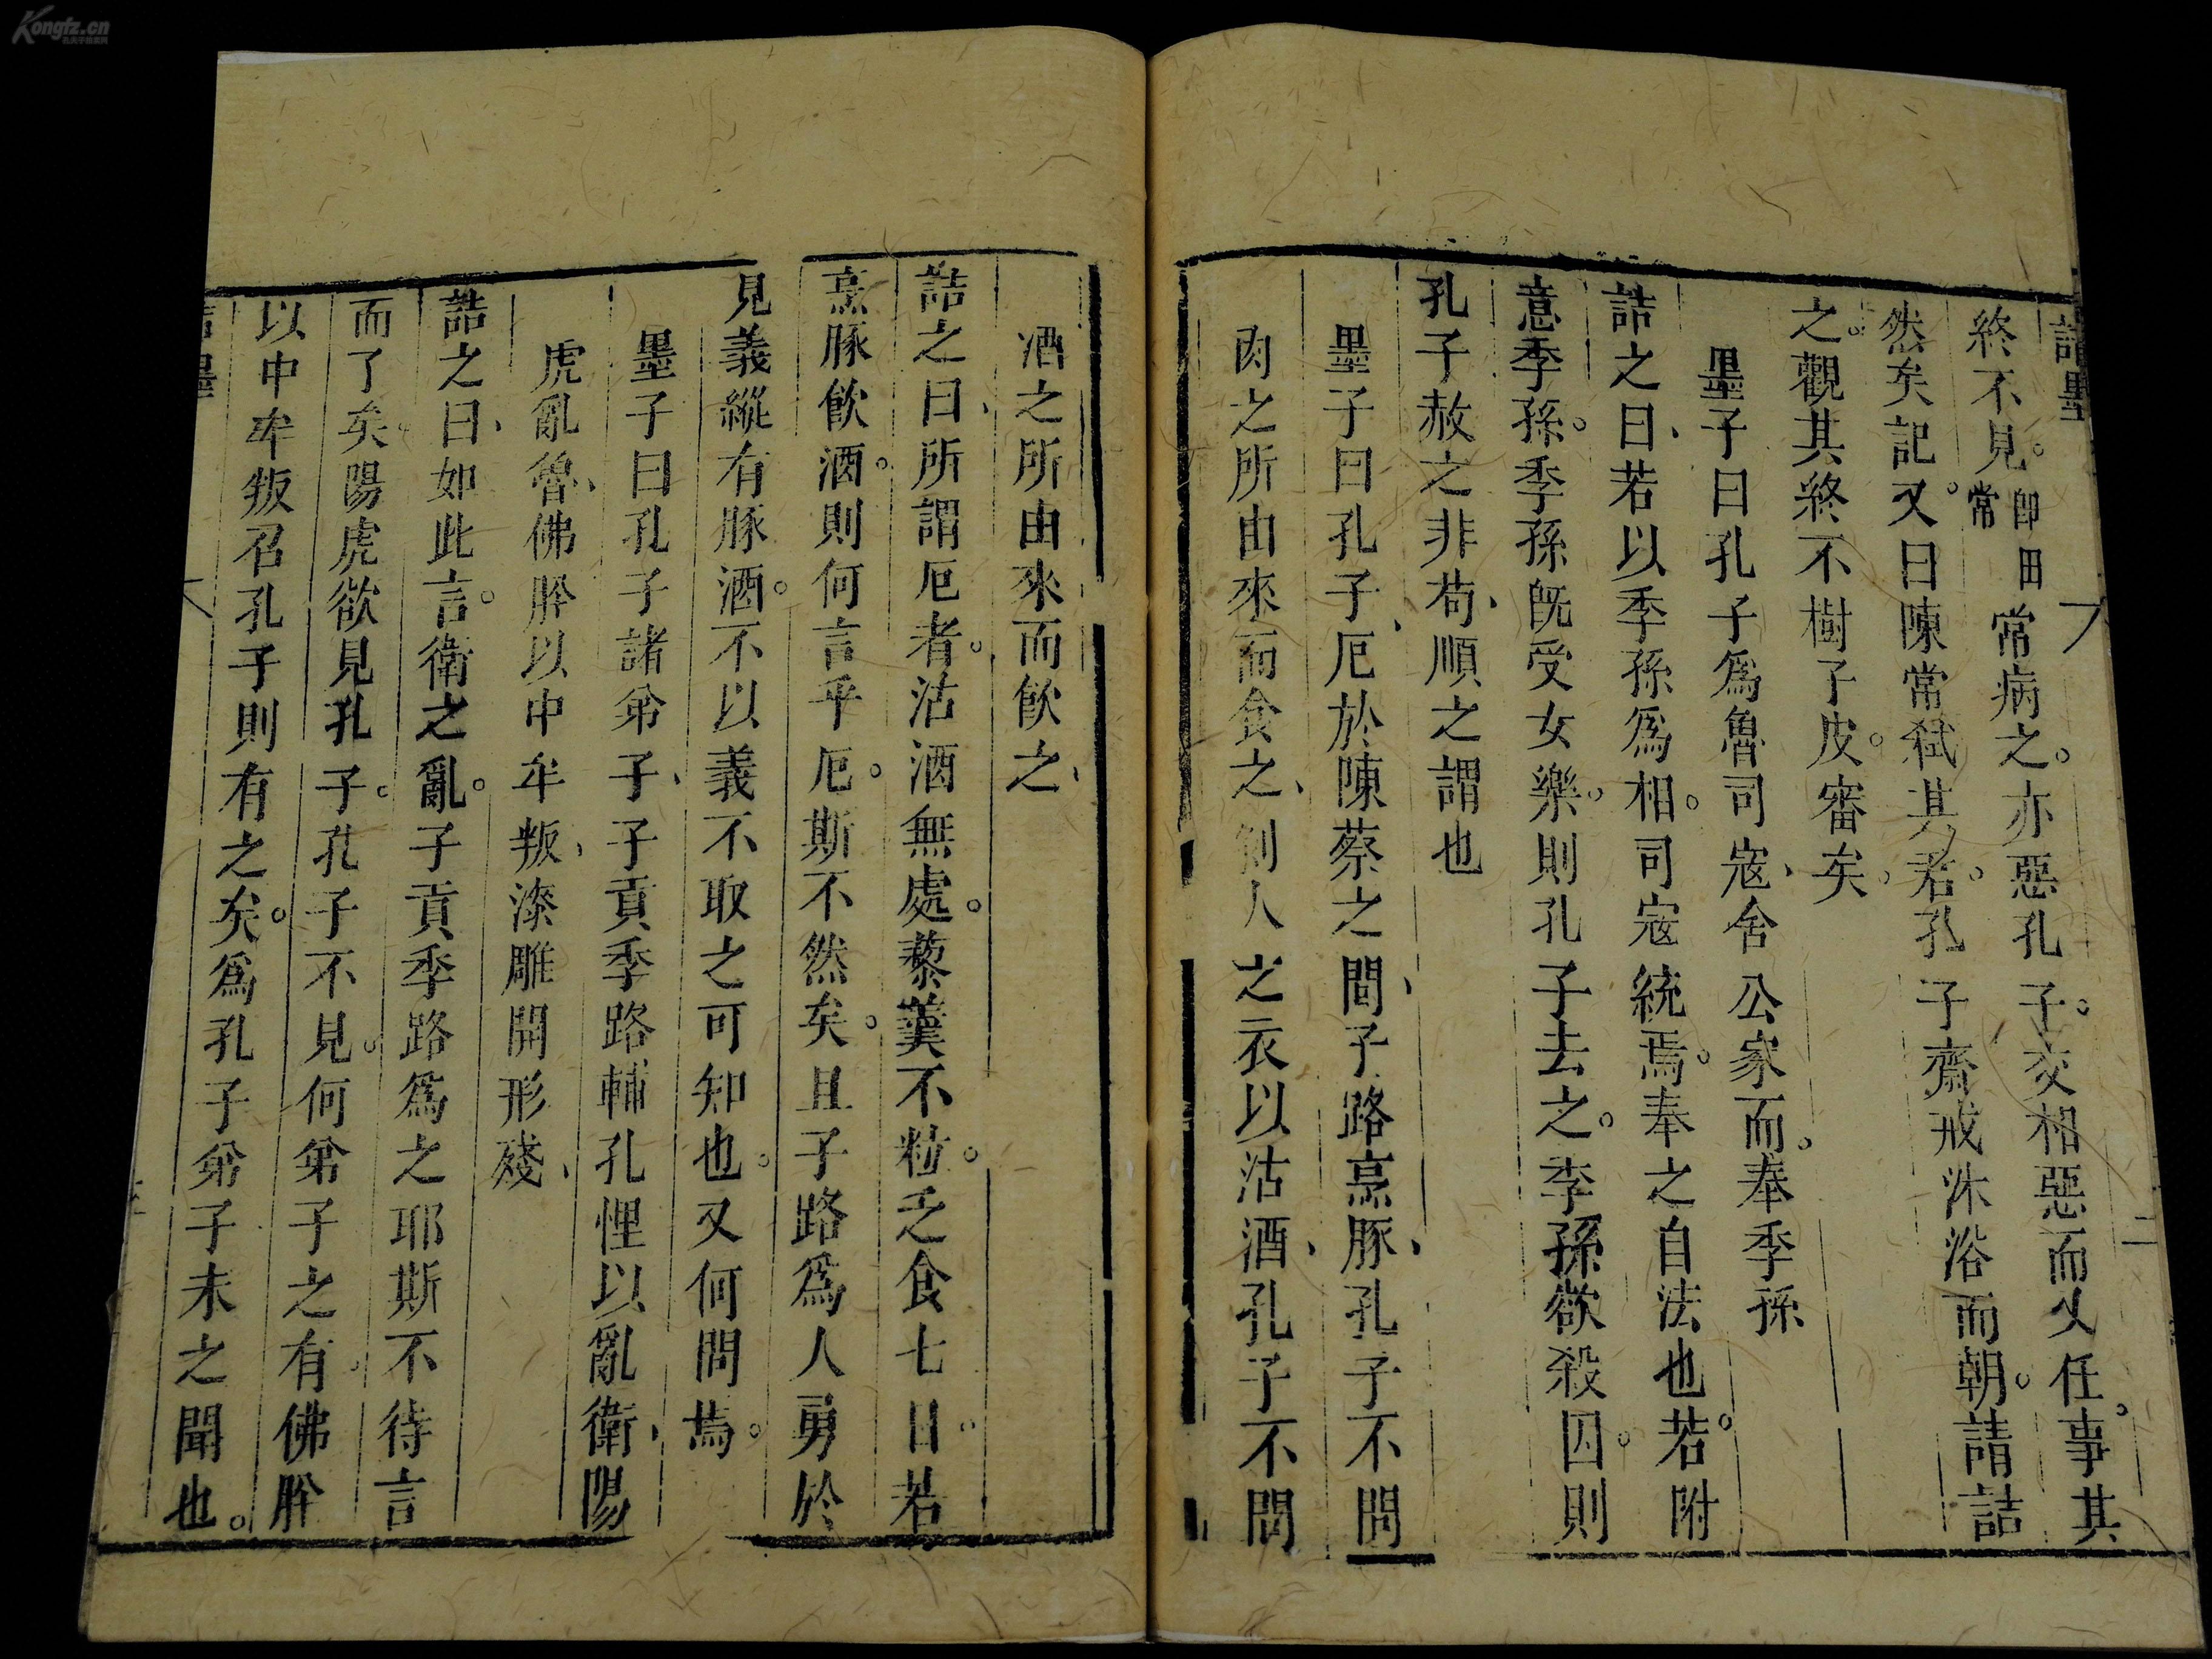 Kongfz.cn
詰墨 二
終不見。即田常常病之。亦惡孔子。交相惡而又任事。其
然矣。記又曰陳常弒其君。孔子齋戒沐浴而朝。請詰
之。觀其終不樹子皮。審矣。
墨子曰孔子爲魯司寇、舍公家而。奉季孫
詰之曰、若以季孫爲相。司寇統焉。奉之自法也。若附
意季孫。季孫既受女樂。則孔子去之。季孫欲殺囚。則
孔子赦之非苟、順之謂也
墨子曰孔子、厄於陳蔡之間、子路烹豚、孔子不問
肉之所由來而食之、剝人之衣以沽酒、孔子不問
酒之所由來而飲之、
詰之曰、所謂厄者。沽酒無處。藜羹不粒。乏食七日。若
烹豚飲酒。則何言乎厄。斯不然矣。且子路爲人勇於
見義縱有豚酒。不以義不取之可知也。又何問焉。
墨子曰孔子諸弟子、子貢季路輔孔悝以亂衛、陽
虎亂魯、佛肸以中牟叛、漆雕開形殘、
詰之曰、如此言。衛之亂。子貢季路爲之耶斯不待言
而了矣。陽虎欲見孔子。孔子不見。何弟子之有。佛肸
以中牟叛召孔子則有之矣。爲孔子弟子未之聞也。
詰墨